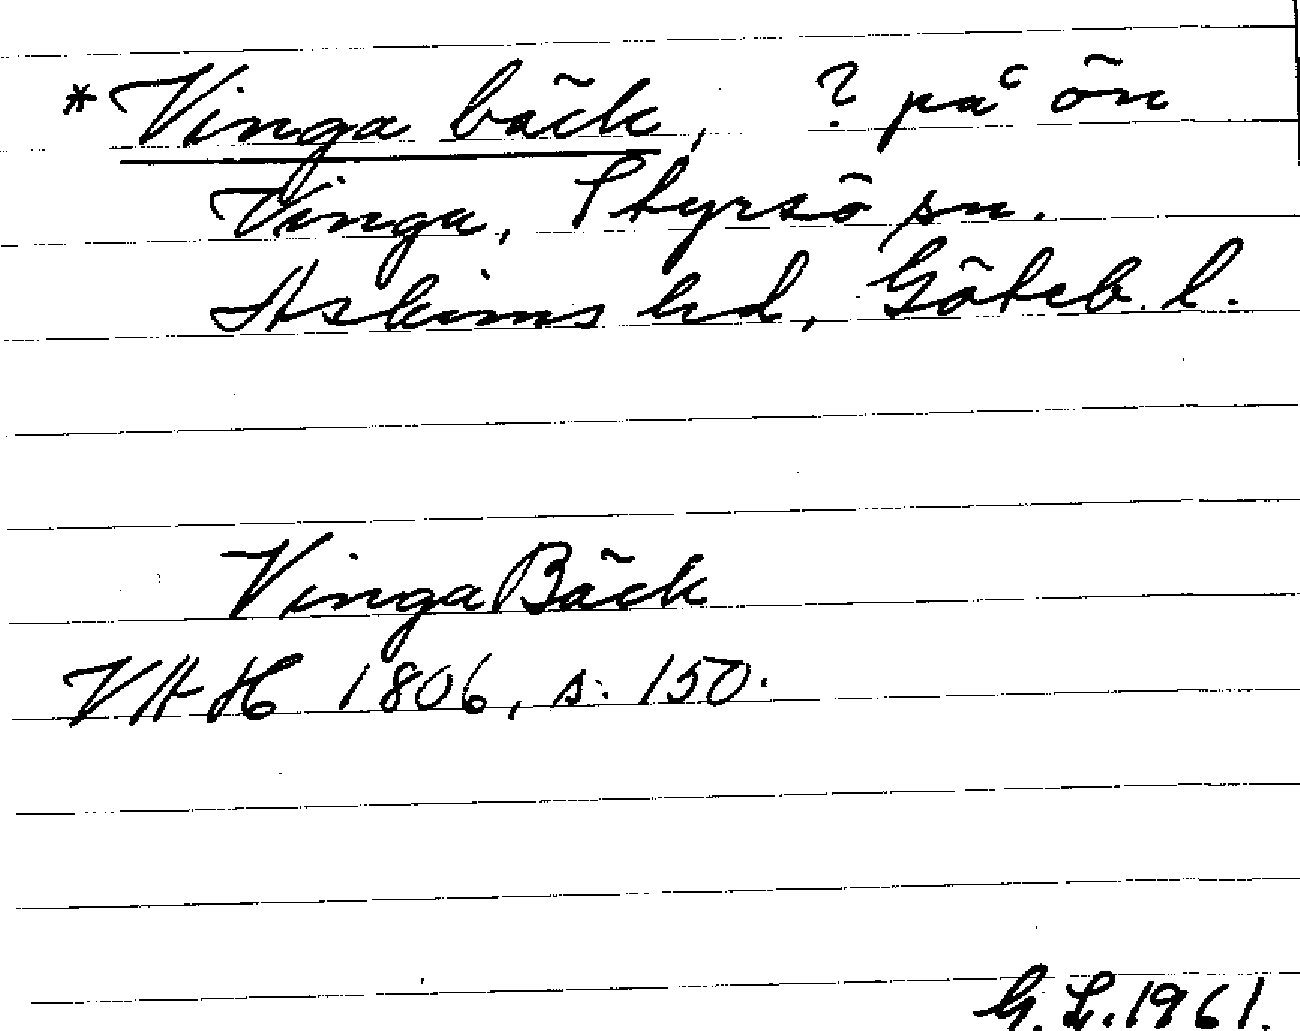 *Vinga bäck, ? på ön
Vinga, Styrsö sn.
Askims hd, Göteb. l.
Vinga Bäck
VAH 1806, s. 150.
G. L. 1961.